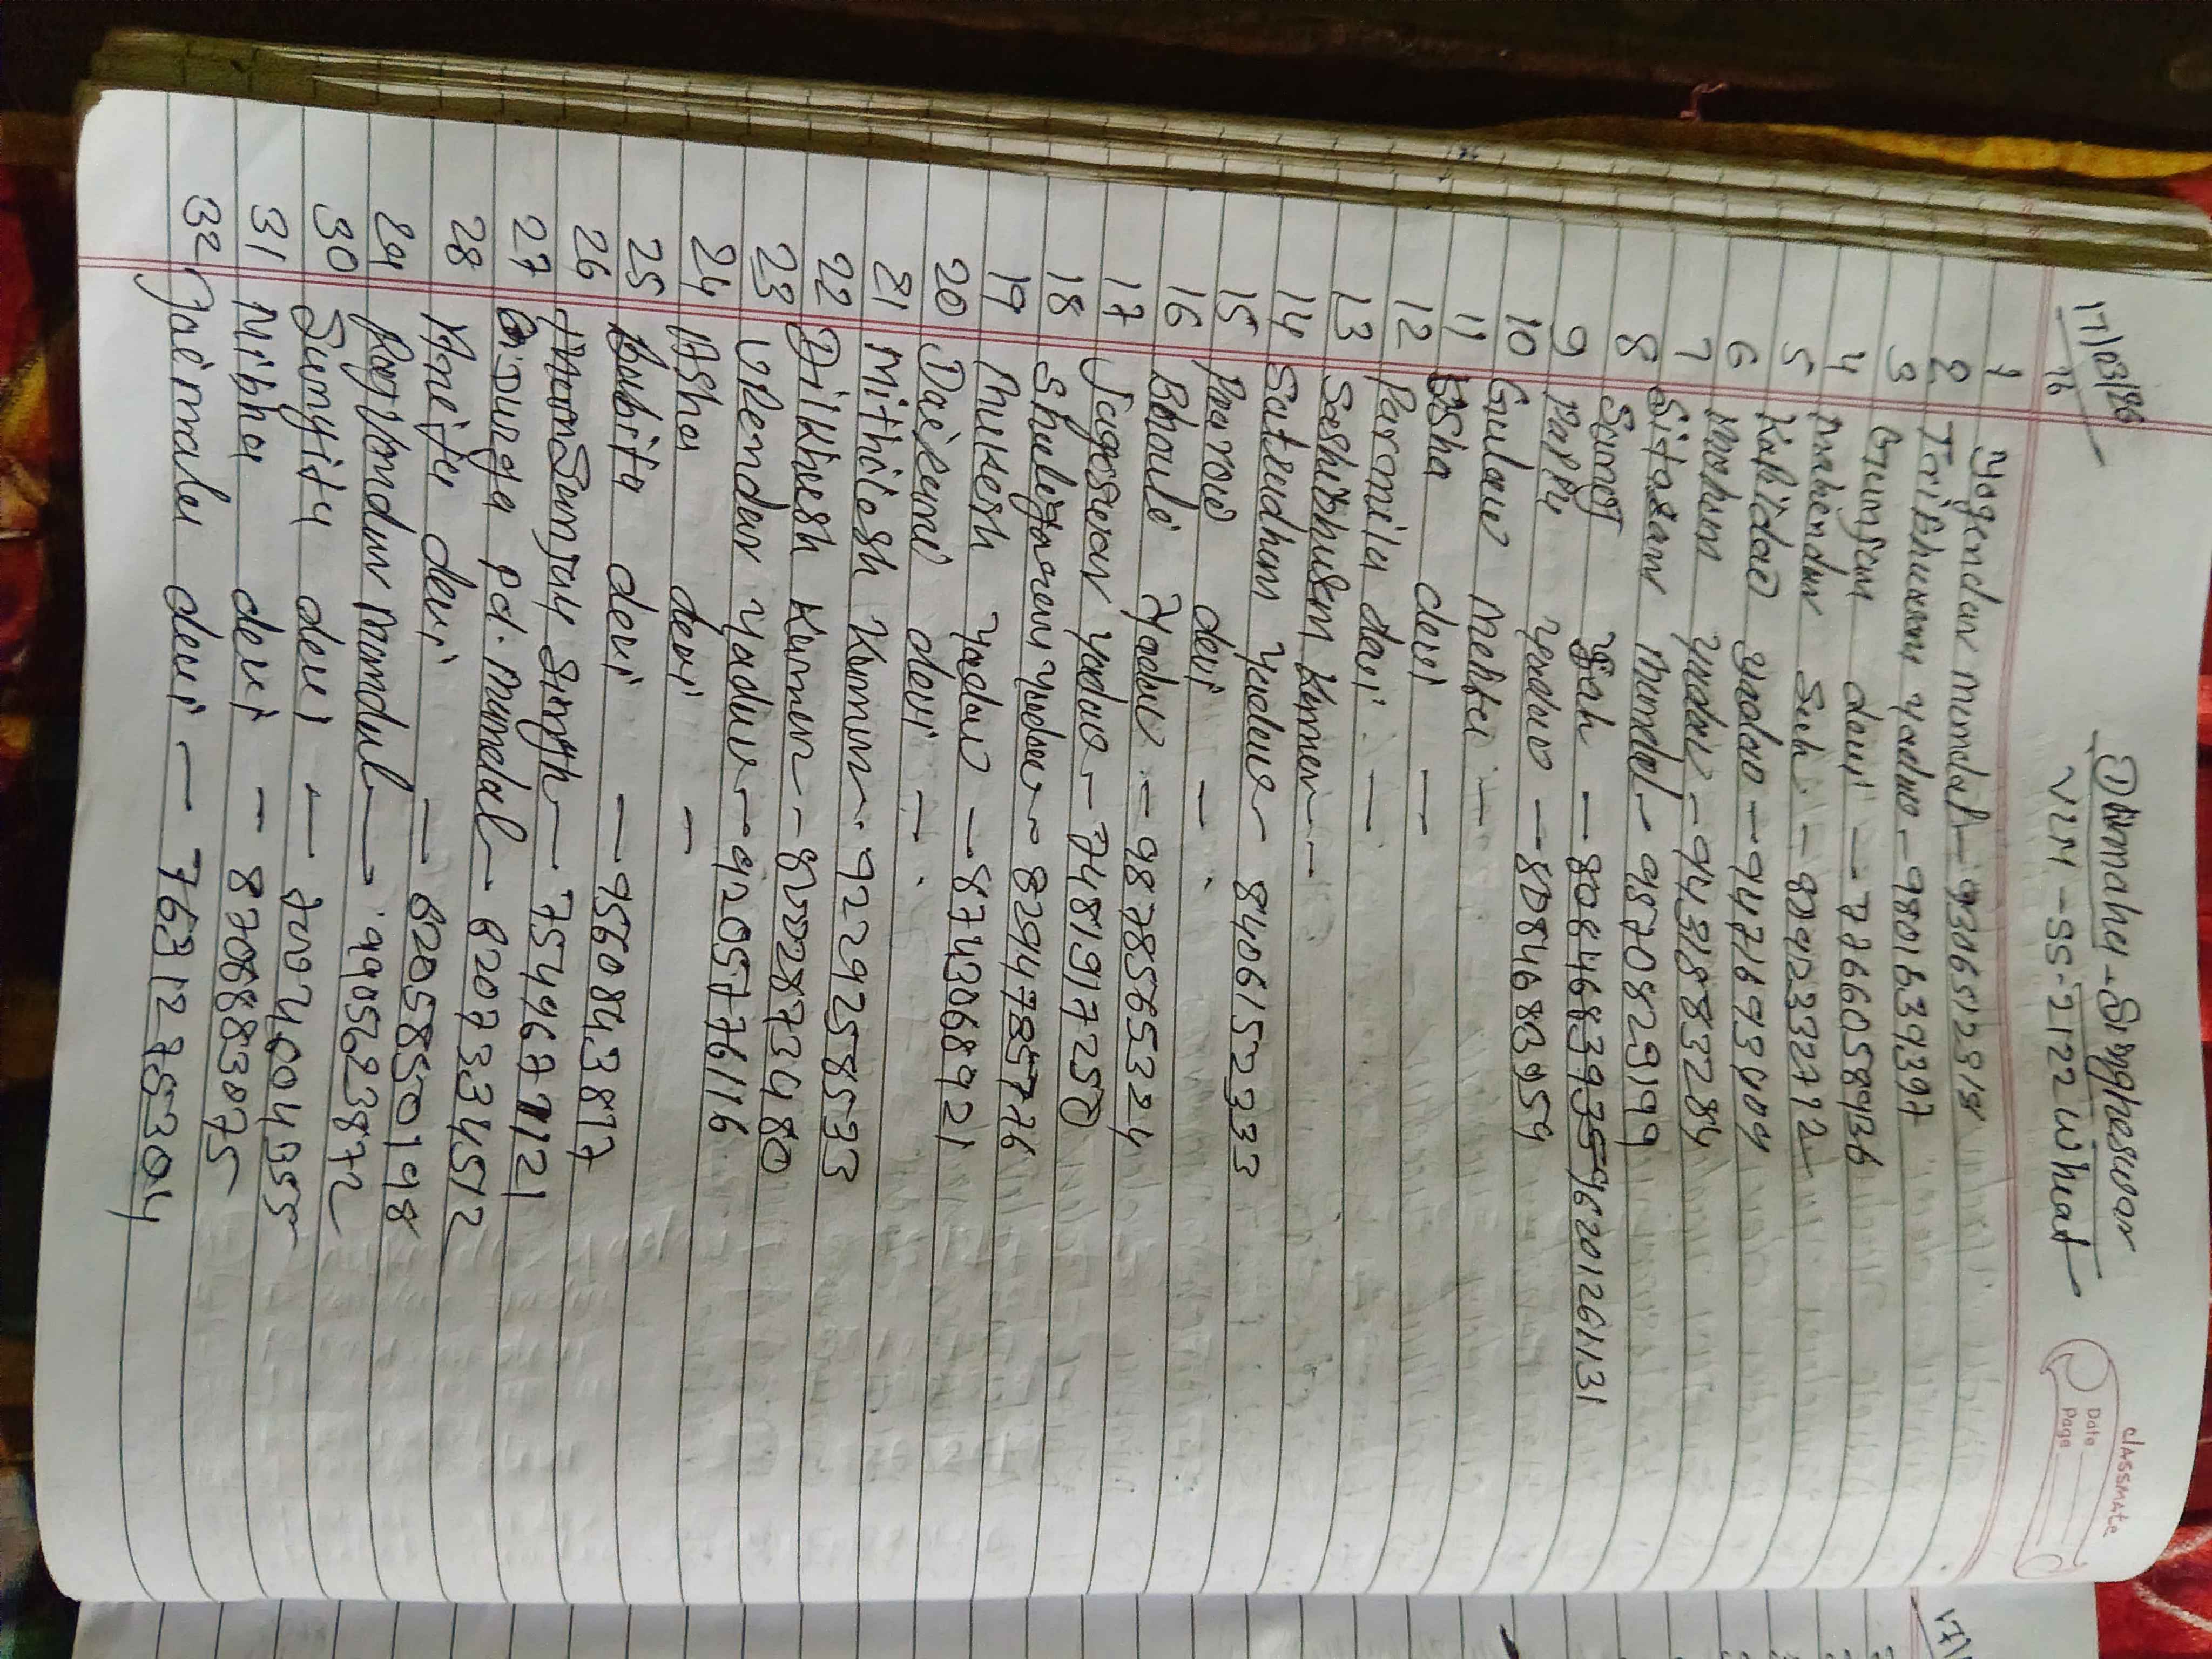 classmate
Date
Page
17/03/26
16
VLM-SS-2122 Wheat
1 Yogendar mundal - 9306512318
2 Tribhuwan yadav - 9801639397
3 Gunjan devi - 7766058936
4 Mahendar Sah - 8242332712
5 Kapildao yadao - 9471693009
6 Mohan yadav - 9431583284
7 Sitaram Mundal - 9570829199
8 Suraj Sah - 8084683935 9620126131
9 Pappu yadav - 8084683959
10 Gulaw Mehta -
11 Usha devi -
12 Parmila devi -
13 Seshibhusan Kumar -
14 Satudhan yadav - 8406152333
15 devi -
16 Bhouli yadav - 9878565324
17 Jagaswar yadav - 7481917250
18 yadav - 8294785776
19 Mukesh yadav - 8743068921
20 Daikumi devi -
21 Mithilesh Kumar - 9229258533
22 Dilkhush Kumar - 8002873480
23 Upendar yadav - 9205776116
24 Asha devi -
25 Babita devi - 9560843817
26 Sunjay Singh - 7549677121
27 Durga pd. Mundal - 6207334512
28 Anita devi - 6205850198
29 Mandal - 9905623872
30 devi -
31 Nibha devi - 8708883075
32 Jaimala devi - 7631275304
17/